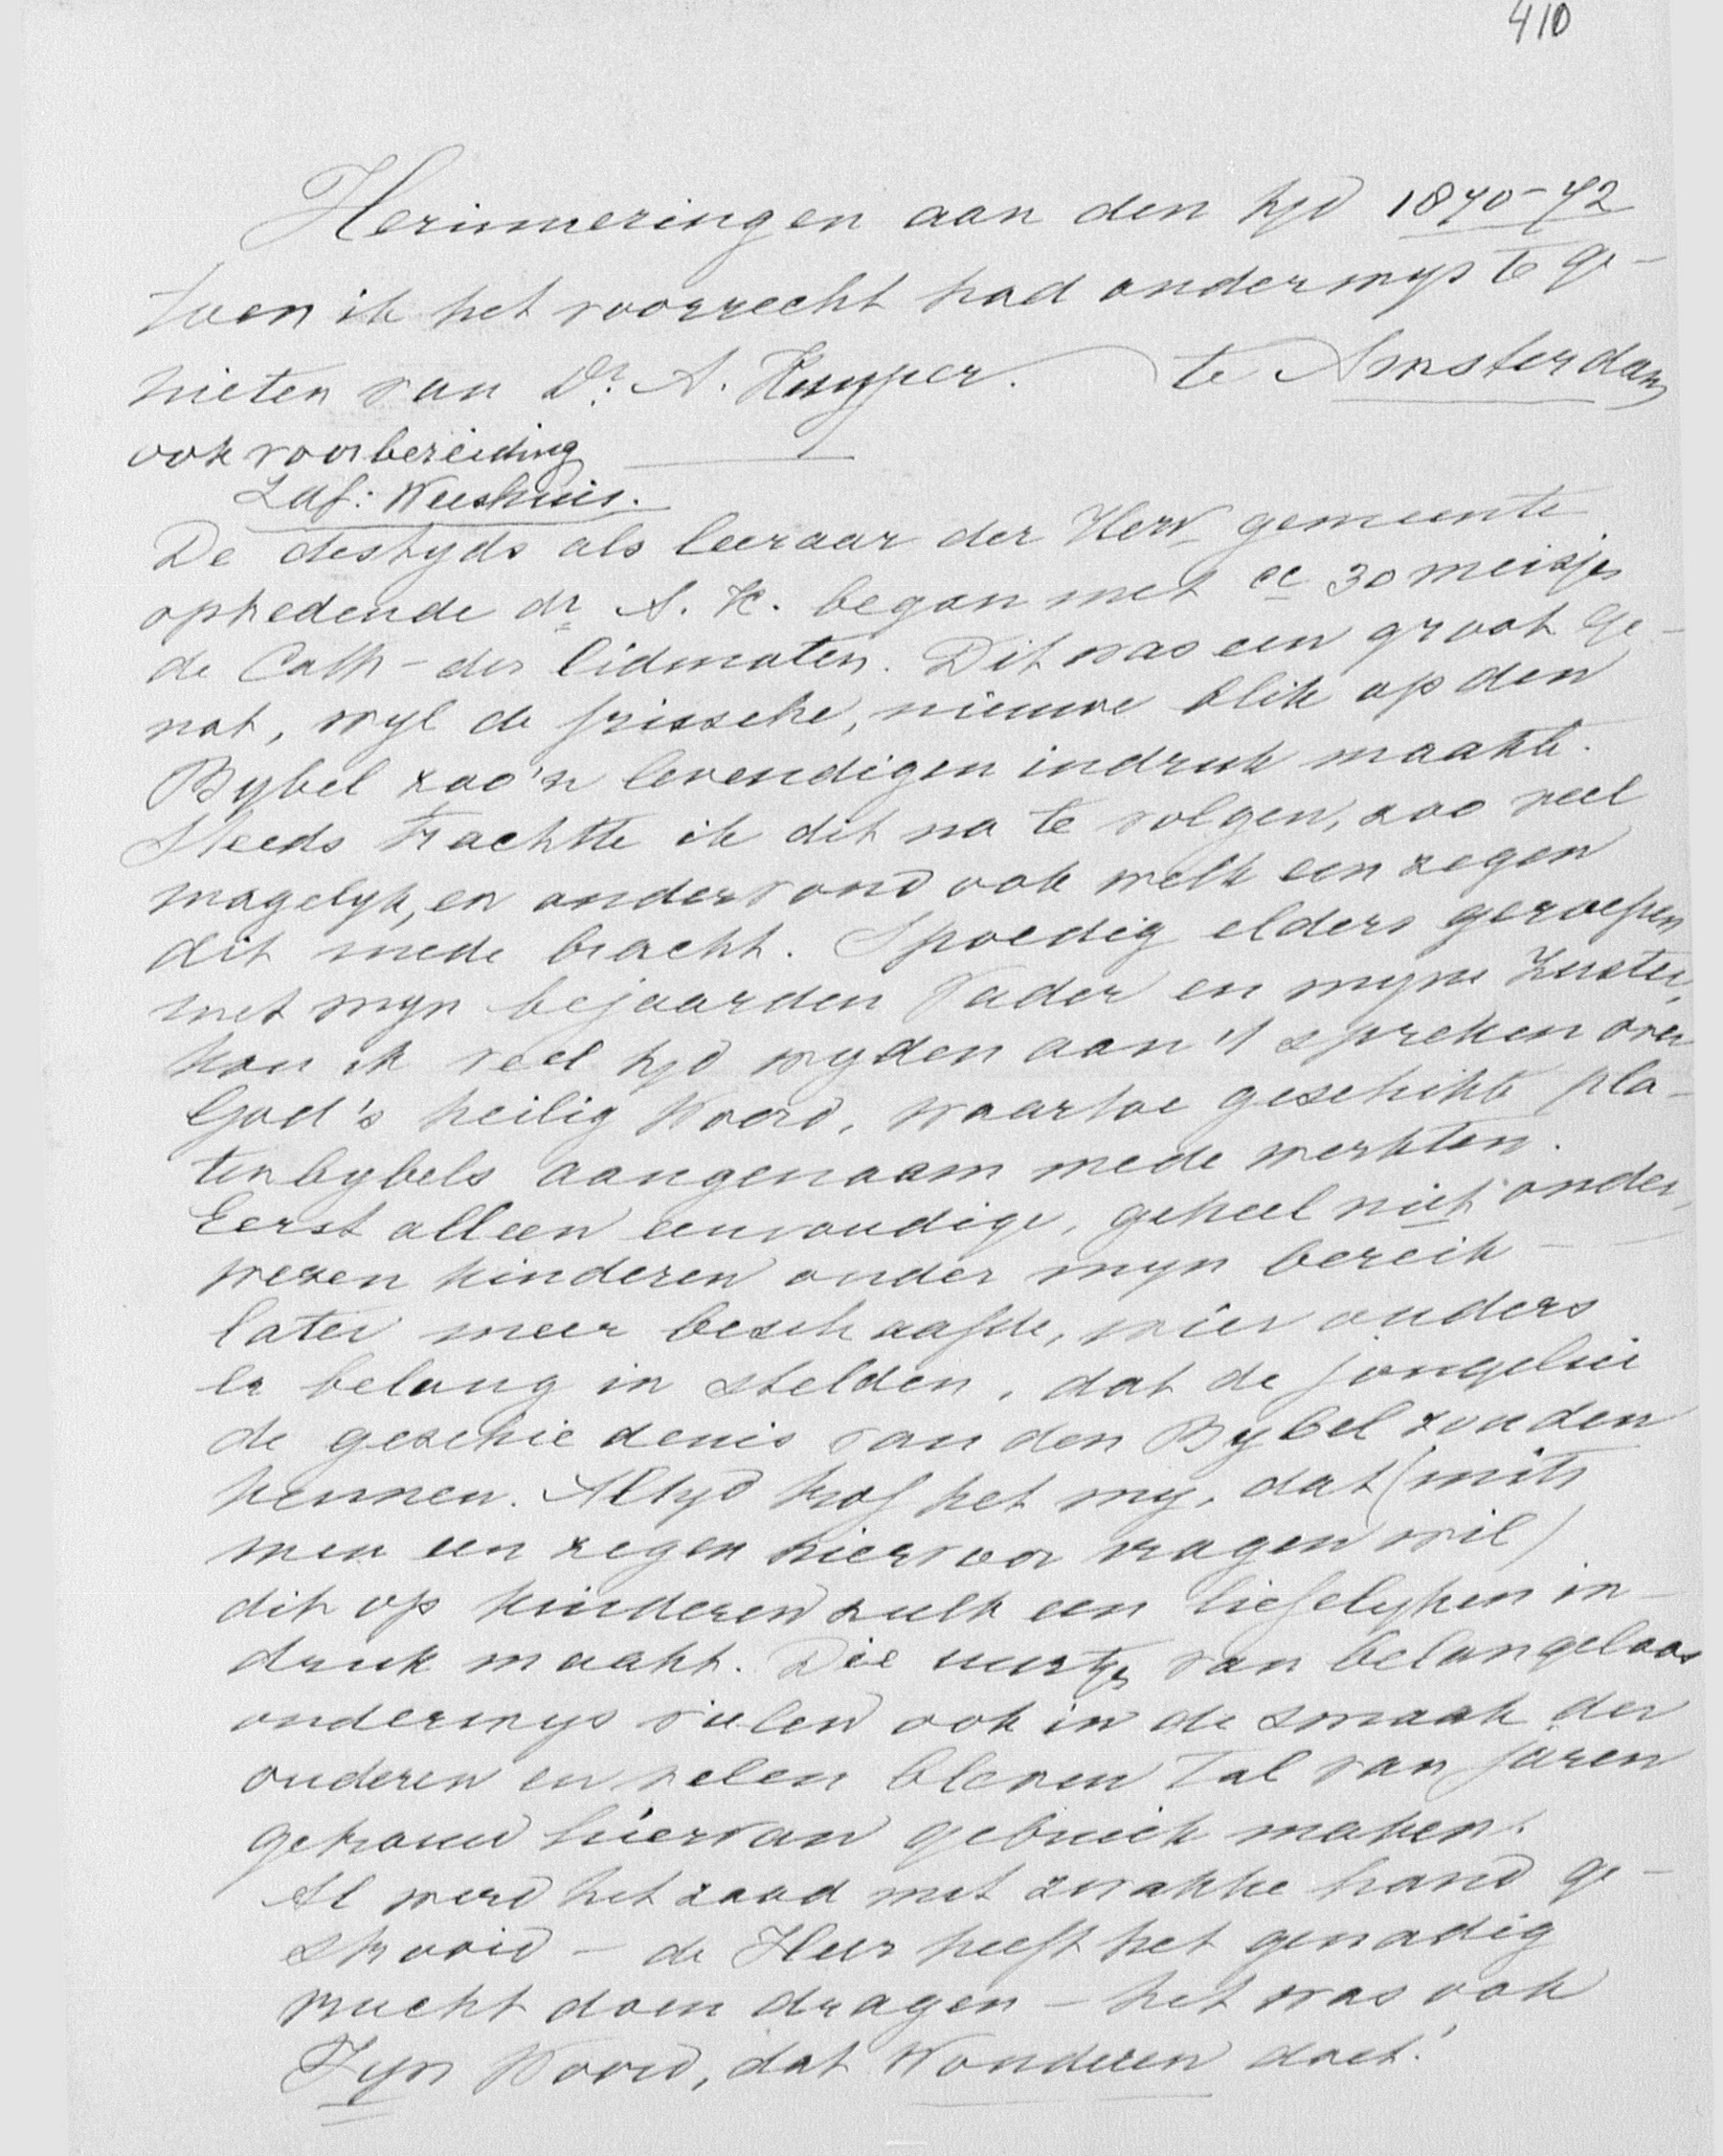 410
Herinneringen aan den tijd 1870-72
toen ik het voorrecht had onderwijs te ge-
nieten van Dr. A. Kuyper. te Amsterdam
ook voorbereiding
Zat: Weeshuis.
De destyds als leeraar der Herv. gemeente
optredende dr A. K. began met cc 30 meisjes
de Cath- der lidmaten. Dit was een groot ge-
not, wyl de frissche, nieuwe blik op den
Bybel zoo'n levendigen indruk maakte.
Steeds trachtte ik dit na te volgen, zoo veel
mogelyk, en ondervond ook welk een zegen
dit mede bracht. Spoedig elders geroepen
met myn bejaarden Vader en myne Zuster,
kon ik veel tyd wyden aan 't spreken over
God's heilig Woord, waartoe geschikte pla-
tenbybels aangenaam mede werkten.
Eerst alleen eenvoudige, geheel niet onder-
wezen kinderen onder myn bereik -
later meer beschaafde, wier ouders
er belang in stelden, dat de jongelui
de geschiedenis van den Bybel zouden
kennen. Altyd trof het my, dat (mits
men een zegen hiervoor vragen wil)
dit op kinderen zulk een liefelyken in-
druk maakt. Die uurtjes van belangeloos
onderwys vielen ook in de smaak der
ouderen en velen bleven tal van jaren
getrouw hiervan gebruik maken.
Al werd het zaad met zwakke hand ge-
strooid - de Heer heeft het genadig
vrucht doen dragen - het was ook
Zyn Woord, dat Wonderen doet!